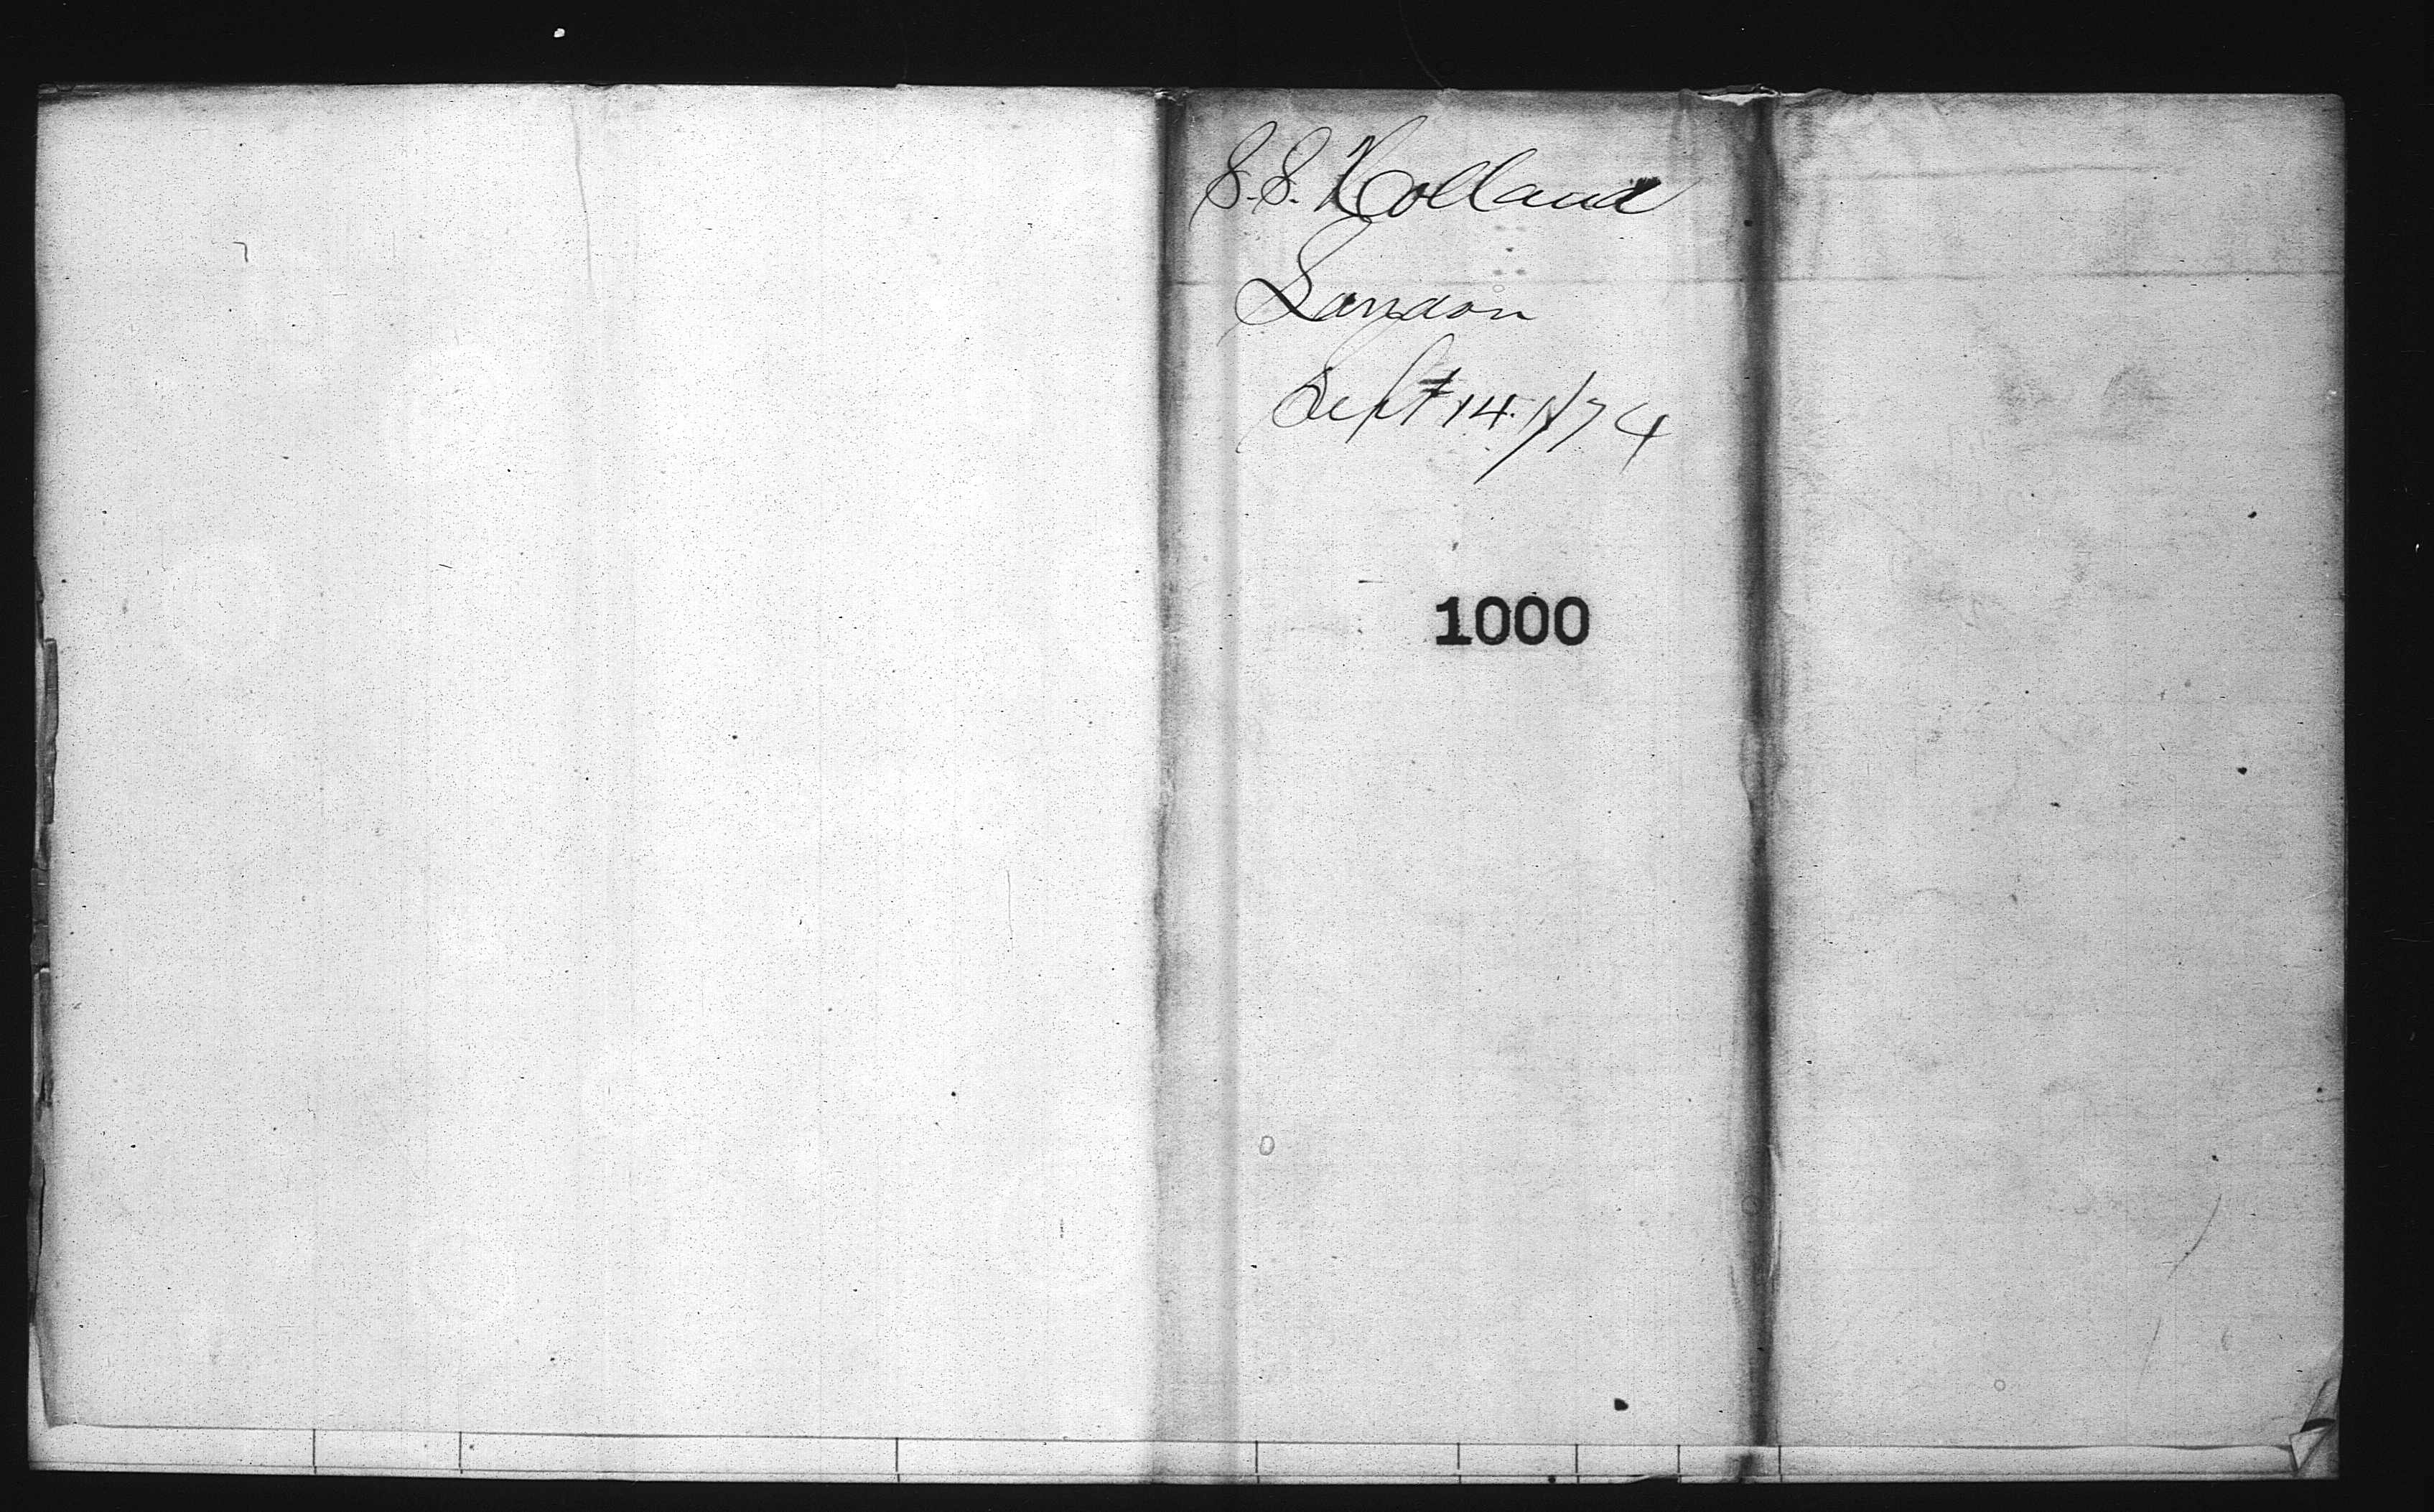 S.S. Holland
London
Sept 14. 1874
1000